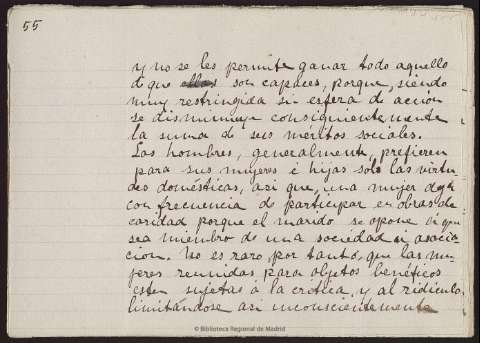 55
y no se les permite ganar todo aquello
de que ellas son capaces, porque, siendo
muy restringida su esfera de acción
se disminuye consiguientemente
la suma de sus méritos sociales.
Los hombres, generalmente, prefieren
para sus mujeres é hijas solo las virtu
des domésticas, asi que, una mujer deja
con frecuencia de participar en obras de
caridad porque el marido se opone á que
sea miembro de una sociedad ú asocia
cion. No es raro, por tanto, que las mu
jeres reunidas para objetos benéficos
esten sujetas á la crítica, y al ridículo,
limitándose asi inconscientemente
© Biblioteca Regional de Madrid